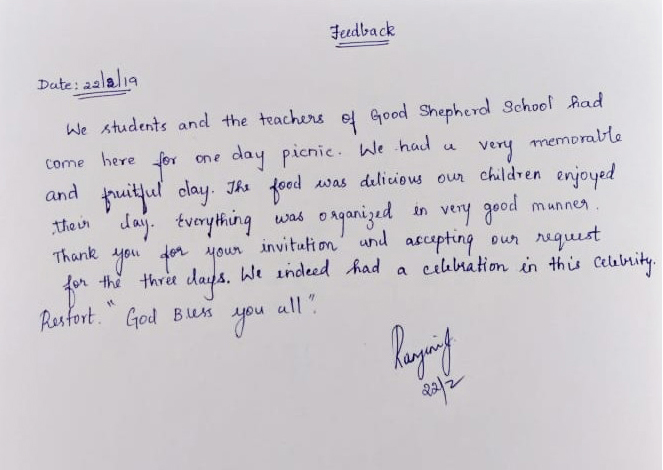 Feedback
Date: 22/2/19
We students and the teachers of Good Shepherd School had
come here for one day picnic. We had a very memorable
and fruitful day. The food was delicious our children enjoyed
their day. Everything was organized in very good manner.
Thank you for your invitation and accepting our request
for the three days. We indeed had a celebration in this Celebrity.
Restort. "God Bless you all".
22/2